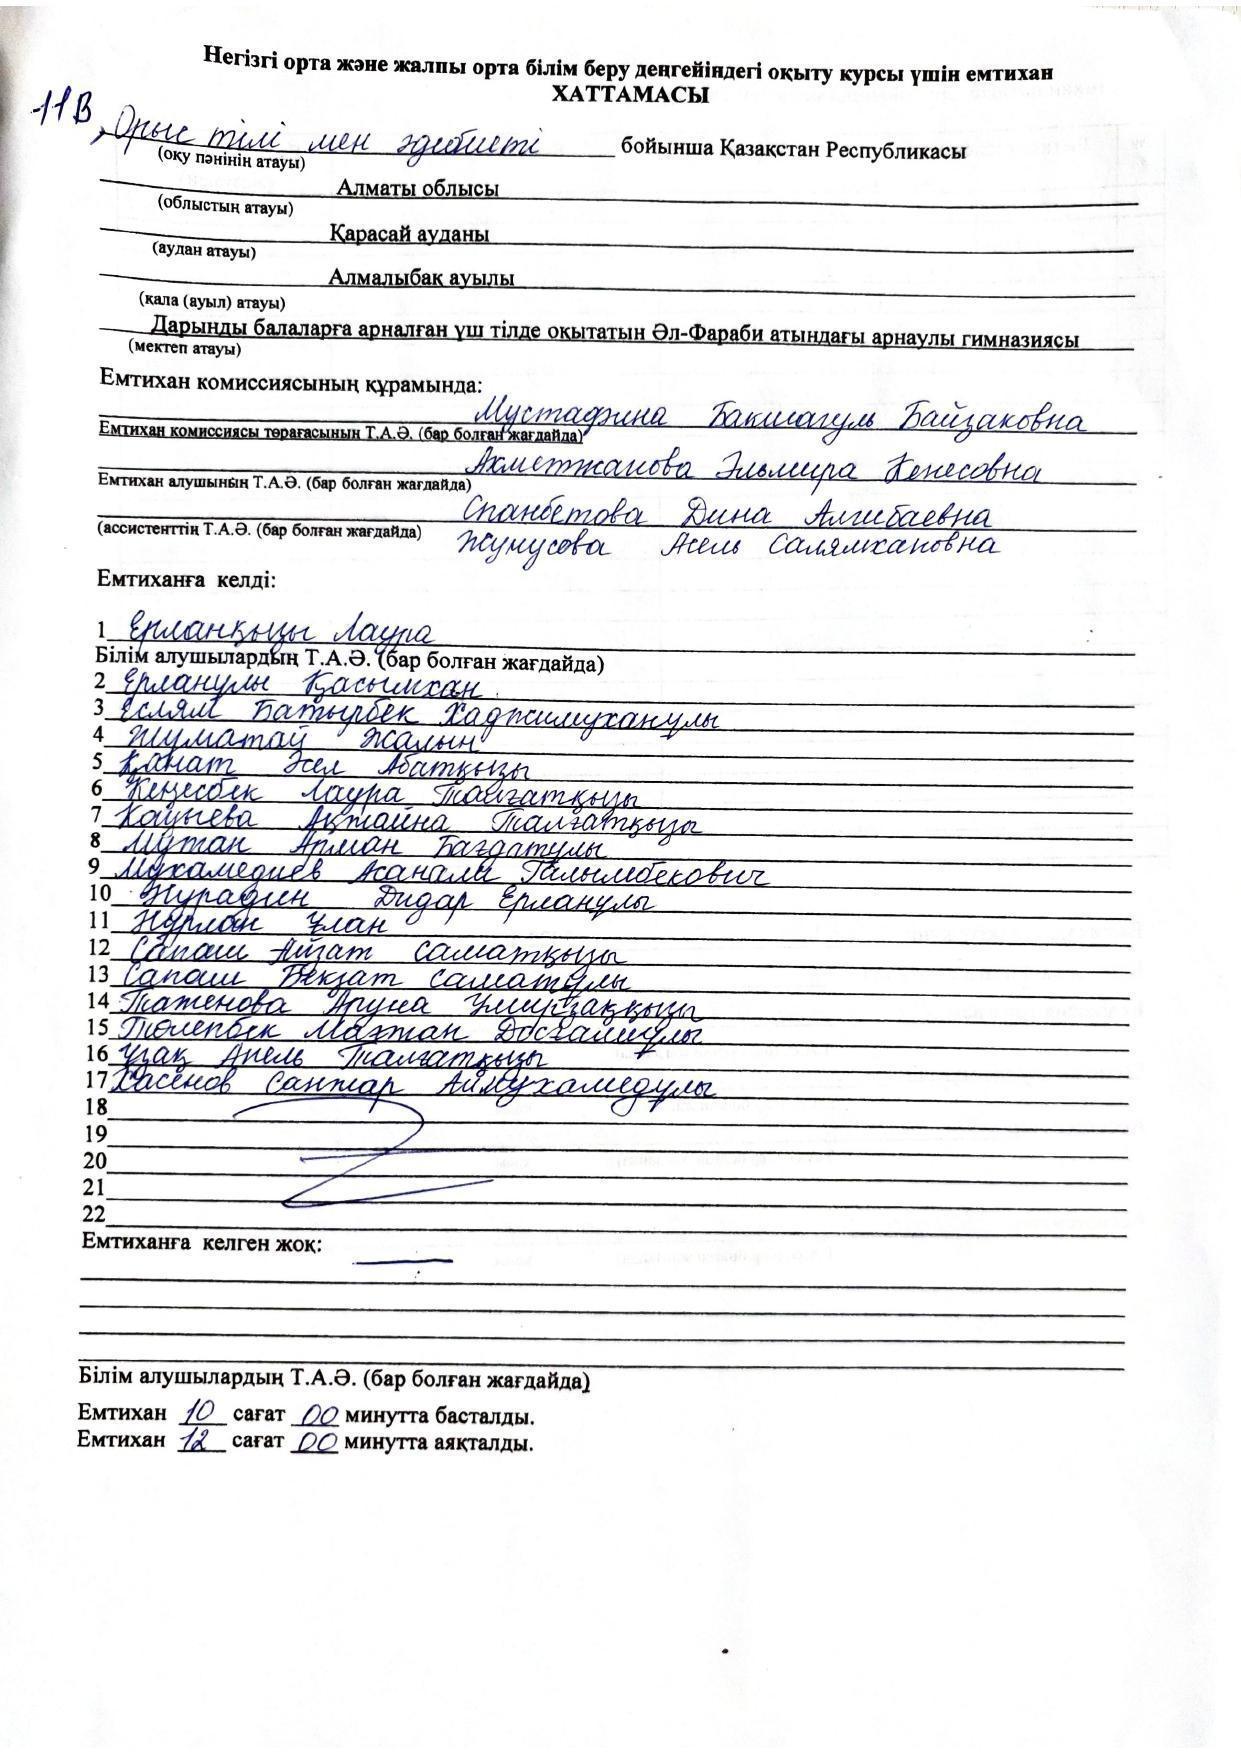 Негізгі орта және жалпы орта білім беру деңгейіндегі оқыту курсы үшін емтихан
ХАТТАМАСЫ
11В, Орыс тілі мен әдебиеті бойынша Қазақстан Республикасы
(оқу пәнінің атауы)
Алматы облысы
(облыстың атауы)
Қарасай ауданы
(аудан атауы)
Алмалыбақ ауылы
(қала (ауыл) атауы)
Дарынды балаларға арналған үш тілде оқытатын Әл-Фараби атындағы арнаулы гимназиясы
(мектеп атауы)
Емтихан комиссиясының құрамында:
Мустафина Бакшагуль Байзаковна
Емтихан комиссиясы төрағасының Т.А.Ә. (бар болған жағдайда)
Ахметжанова Эльмира Кенесовна
Емтихан алушының Т.А.Ә. (бар болған жағдайда)
Спанбетова Дина Алгибаевна
(ассистенттің Т.А.Ә. (бар болған жағдайда)
Жунусова Асель Салялхановна
Емтиханға келді:
1 Ерланқызы Лаура
Білім алушылардың Т.А.Ә. (бар болған жағдайда)
2 Ерланұлы Қасымхан
3 Еслям Батырбек Хаджимуханұлы
4 Жуматай Жалын
5 Қанат Әсел Абатқызы
6 Кеңесбек Лаура Талғатқызы
7 Койшева Ақжайна Талғатқызы
8 Мұтан Арман Бағдатұлы
9 Мухамедиев Асанали Галымбекович
10 Нурадин Дидар Ерланұлы
11 Нұрлан Ұлан
12 Сапаш Айзат Саматқызы
13 Сапаш Бекзат Саматұлы
14 Таженова Аруна Умирзаққызы
15 Төлепбек Мажан Досғалиұлы
16 Ұзақ Анель Талғатқызы
17 Хасенов Санжар Аймухамедұлы
18
19
20
21
22
Емтиханға келген жоқ:
Білім алушылардың Т.А.Ә. (бар болған жағдайда)
Емтихан 10 сағат 00 минутта басталды.
Емтихан 12 сағат 00 минутта аяқталды.